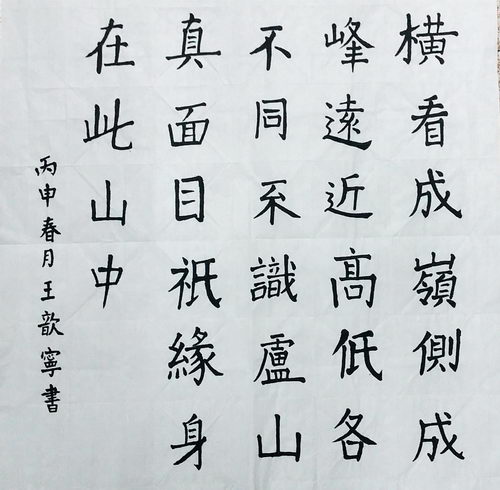 橫看成嶺側成
峰遠近髙低各
不同不識盧山
真面目祇緣身
在此山中
丙申春月王歆寧書